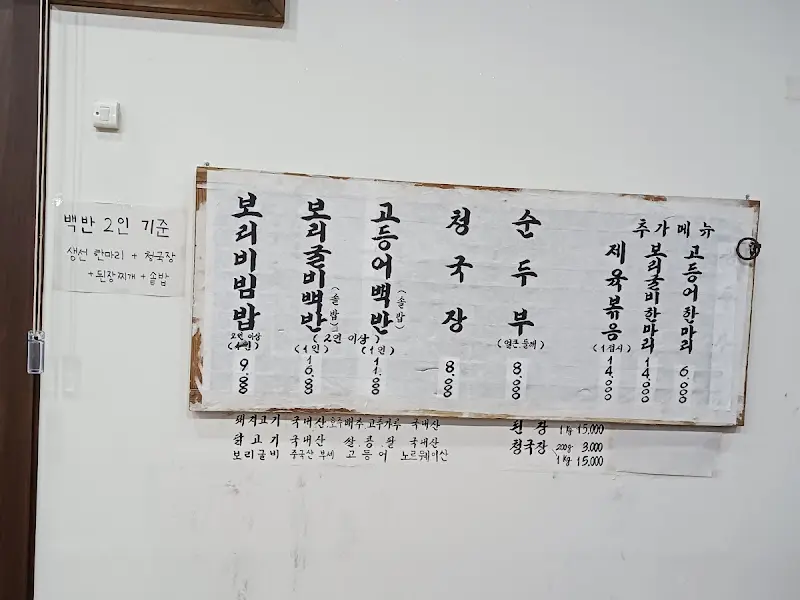 백반 2인 기준
생선 한마리 + 청국장
+ 된장찌개 + 솥밥
보리비빔밥
2인 이상
(1인)
9.000
보리굴비백반
(솥밥)
(1인)
16.000
고등어백반
(솥밥)
(2인 이상)
(1인)
11.000
청국장
8.000
순두부
(얼큰.들깨)
8.000
추가메뉴
제육볶음
(1접시)
14.000
보리굴비한마리
14.000
고등어한마리
6.000
돼지고기 국내산, 배추, 고추가루 국내산
닭고기 국내산 쌀.콩.팥 국내산
보리굴비 중국산 부세 고등어 노르웨이산
된장 1kg 15,000
청국장 200g 3.000
1kg 15,000